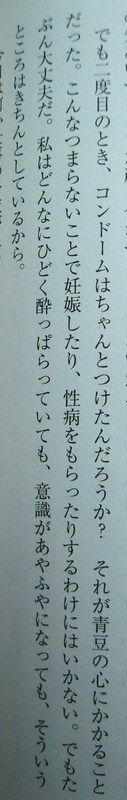 でも二度目のとき、コンドームはちゃんとつけたんだろうか？　それが青豆の心にかかること
だった。こんなつまらないことで妊娠したり、性病をもらったりするわけにはいかない。でもた
ぶん大丈夫だ。私はどんなにひどく酔っぱらっていても、意識があやふやになっても、そういう
ところはきちんとしているから。